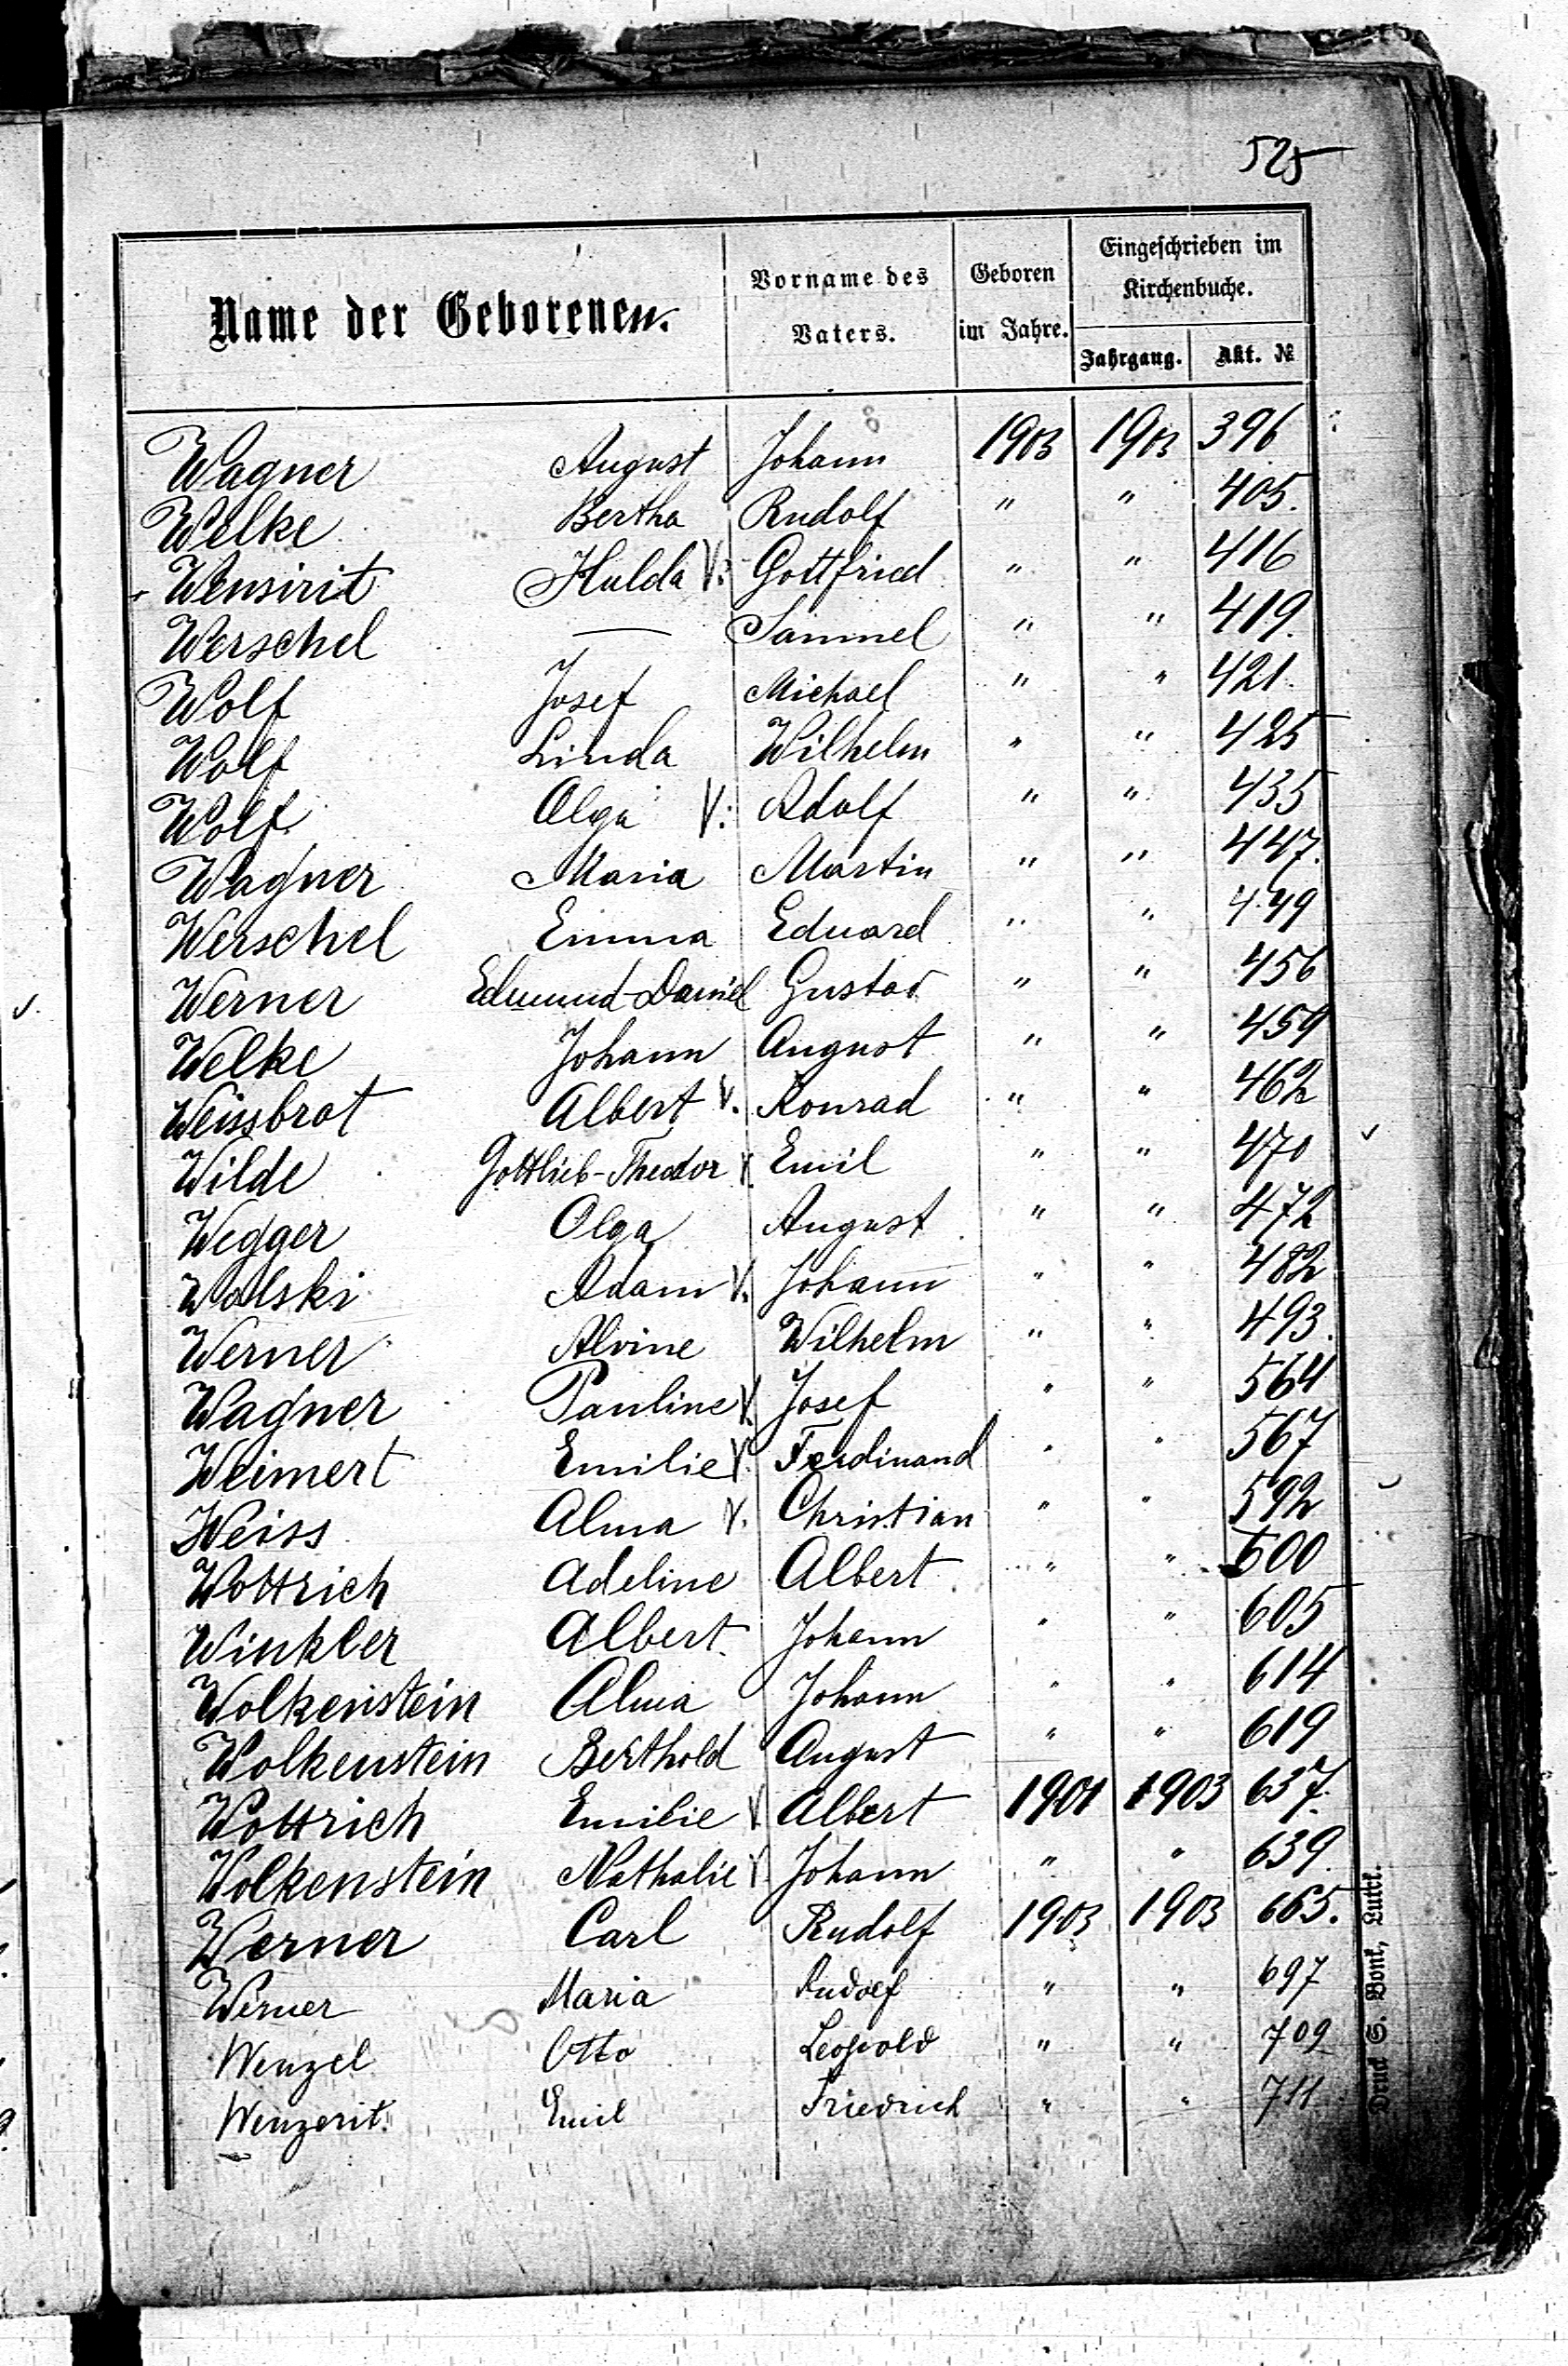 525
Name der Geborenen. Vorname des Vaters. Geboren im Jahre. Eingeschrieben im Kirchenbuche.
Jahrgang. Akt. №
Wagner August Johann 1903 1903 396
Welke Bertha Rudolf " " 405.
Wensirit Hulda V. Gottfried " " 416
Werschel — Samuel " " 419.
Wolf Josef Michael " " 421.
Wolf Linda Wilhelm " " 425
Wolf Olga V. Adolf " " 435
Wagner Maria Martin " " 447.
Werschel Emma Eduard " " 449
Werner Edmund-Daniel Gustav " " 456
Welke Johann August " " 459
Weissbrot Albert V. Konrad " " 462
Wilde Gottlieb-Theodor V. Emil " " 470
Wegger Olga August " " 472
Wolski Adam V. Johann " " 482
Werner Alvine Wilhelm " " 493.
Wagner Pauline V. Josef " " 564
Weimert Emilie V. Ferdinand " " 567
Weiss Alma V. Christian " " 592
Wottrich Adeline Albert " " 600
Winkler Albert Johann " " 605
Wolkenstein Alma Johann " " 614
Wolkenstein Berthold August " " 619
Wottrich Emilie V. Albert 1901 1903 637.
Wolkenstein Nathalie V. Johann " " 639.
Werner Carl Rudolf 1903 1903 665.
Werner Maria Rudolf " " 697
Wenzel Otto Leopold " " 709
Wenzerit. Emil Friedrich " " 711
Druck S. Bonk, Luzk.